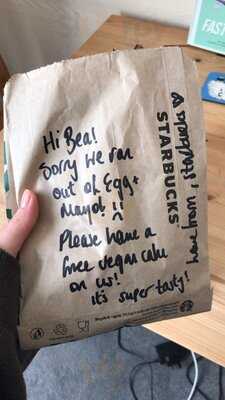 Hi Bea!
Sorry we ran
out of Egg+
Mayo!!
Please have a
free vegan cake
on us!
it's super tasty!
STARBUCKS
FAST